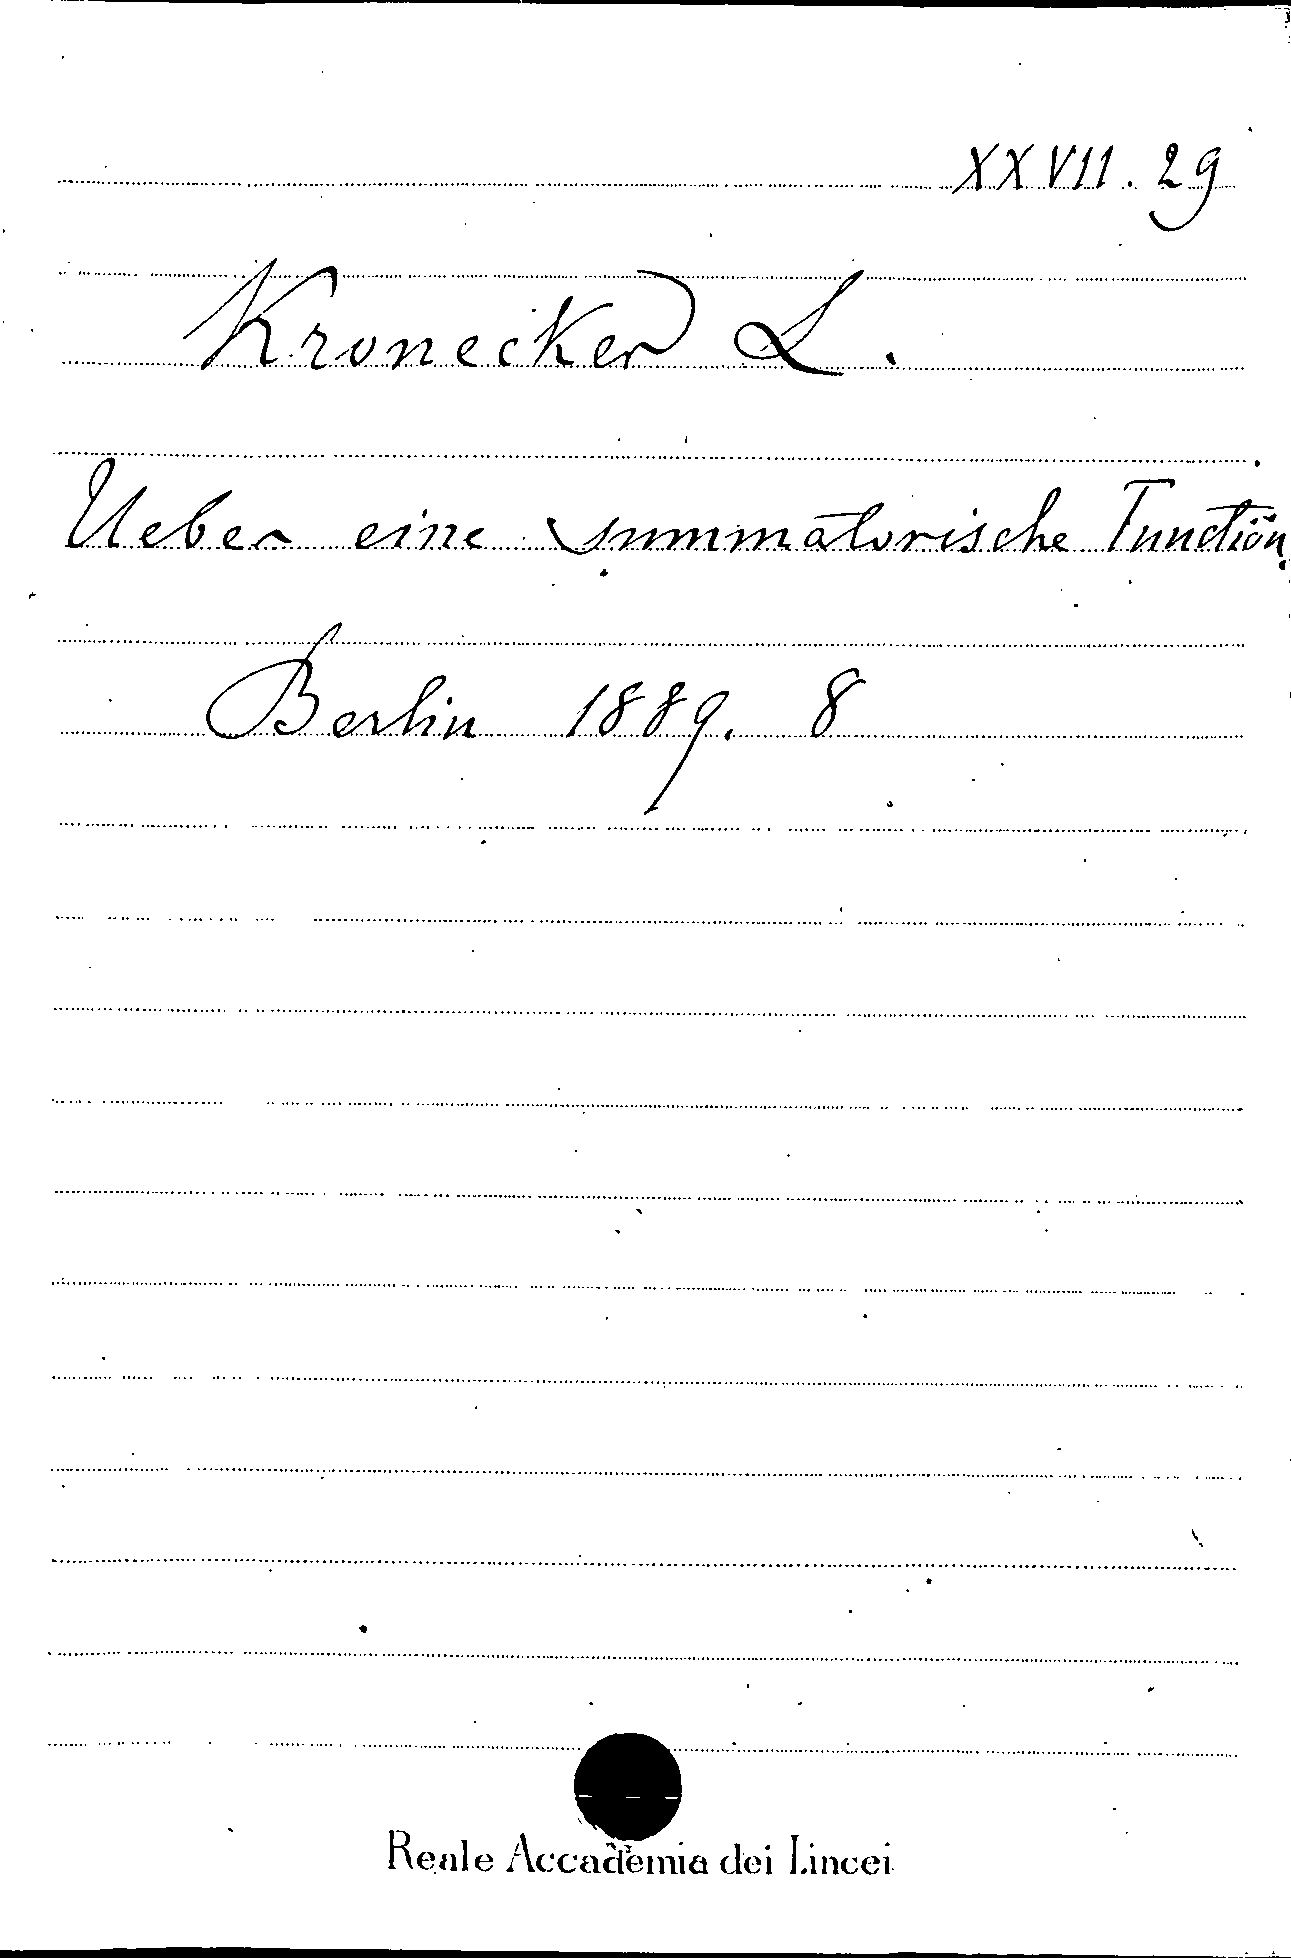 XXVII. 29
Kronecker L.
Ueber eine summatorische Function.
Berlin 1889. 8
Reale Accademia dei Lincei